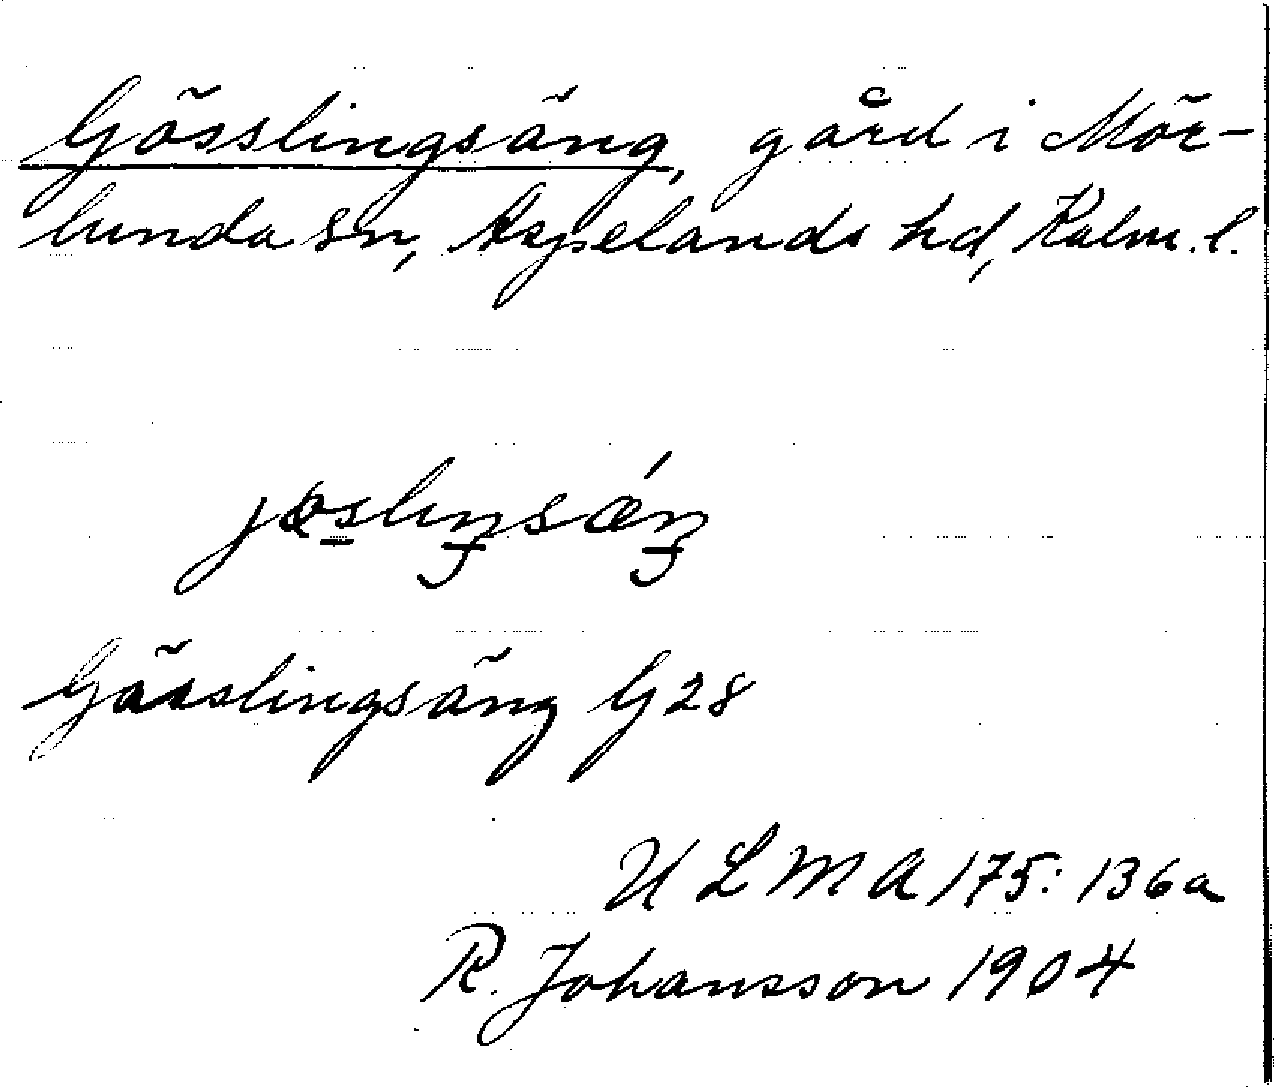 Gösslingsäng, gård i Mör-
lunda sn, Aspelands hd, Kalm. l.
Gösslingsäng G 28
U L M A 175: 136a
R. Johansson 1904